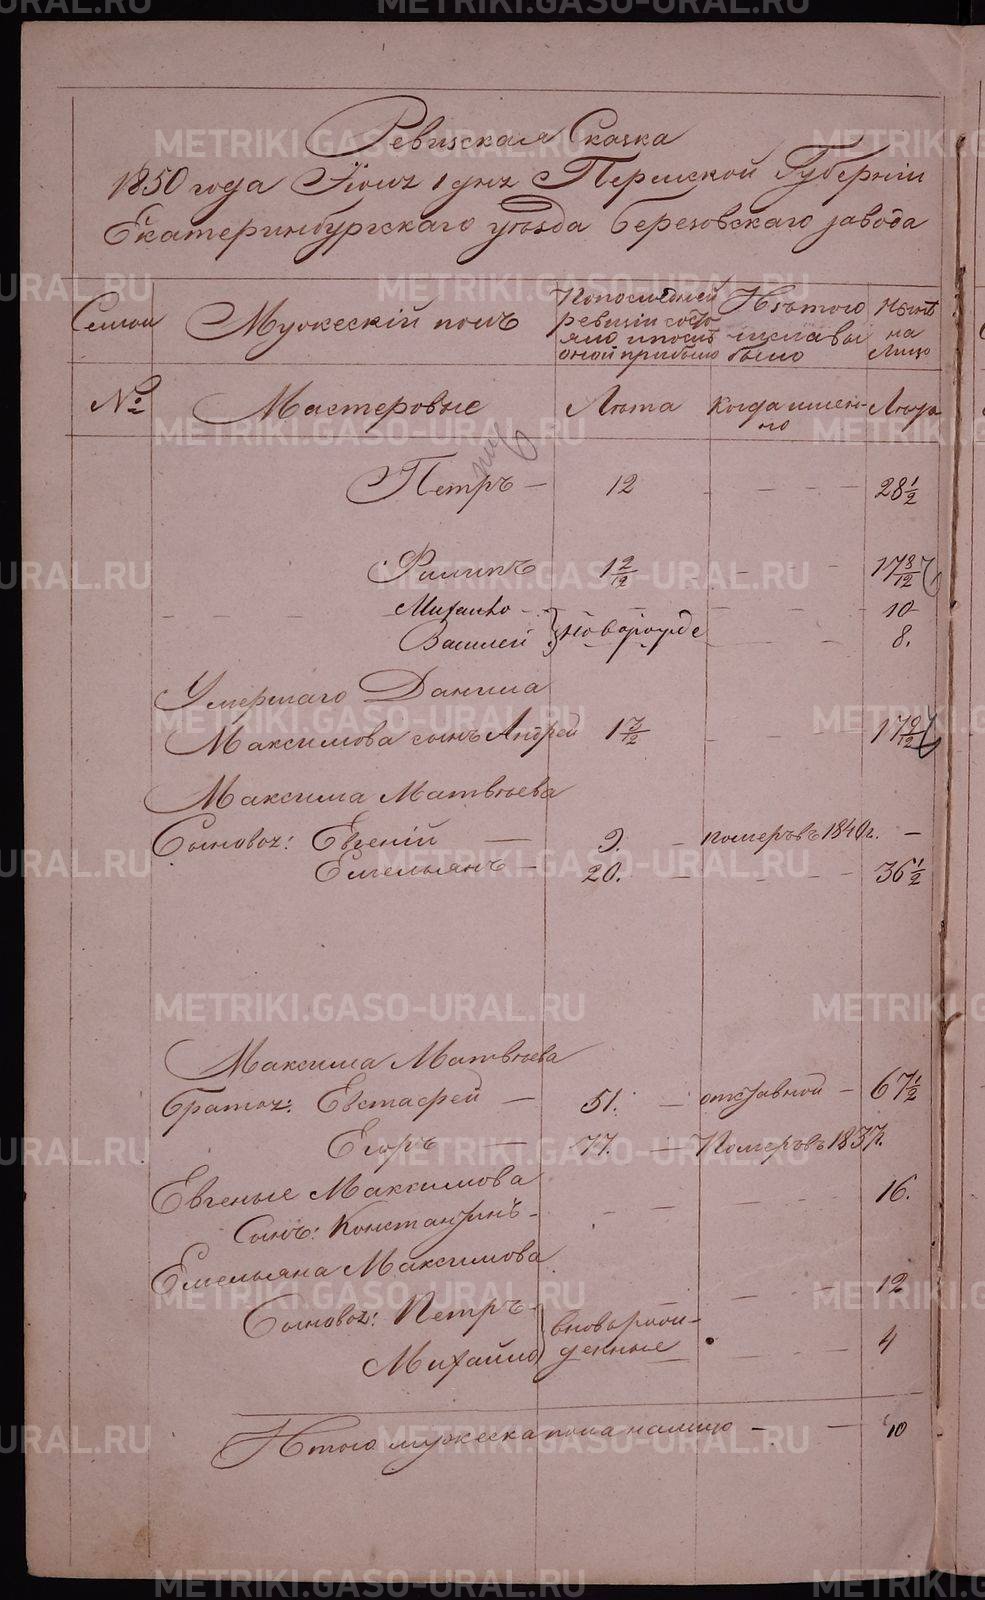 Ревизская Сказка
1850 года Іюнz 1 днz Пермской Губерніи
Екатеринбургскаго уѣзда Березовскаго завода
Семьи
Мужескій полъ
По последней ревизіи состояло и после оной прибыло
Изъ того числа выбыло
Нынѣ на лицо
№
Мастеровые
Лѣта
Когда именно
Лѣта
Петръ — 12 — — — 28 1/2
Филипъ 1 2/12 — — — 17 8/12
Михайло — — — 10
Василей } новорожде — — 8.
Умершаго Данила
Максимова сынъ Андрей 1 3/12 — — — 17 9/12
Максима Матвѣева
Сыновьz: Евгеній — 9. — померъ въ 1840 г. —
Емельянъ — 20. — — — 36 1/2
Максима Матвѣева
братьz: Евстафей — 51. — отставной — 67 1/2
Егоръ — 77. — Померъ въ 1837г.
Евгенье Максимова
Сынъ: Константинъ — — — 16.
Емельяна Максимова
Сыновьz: Петръ — — — 12
Михайло } вновьрожденные — — 4
Итого мужеска пола на лицо — — 10
METRIKI.GASO-URAL.RU